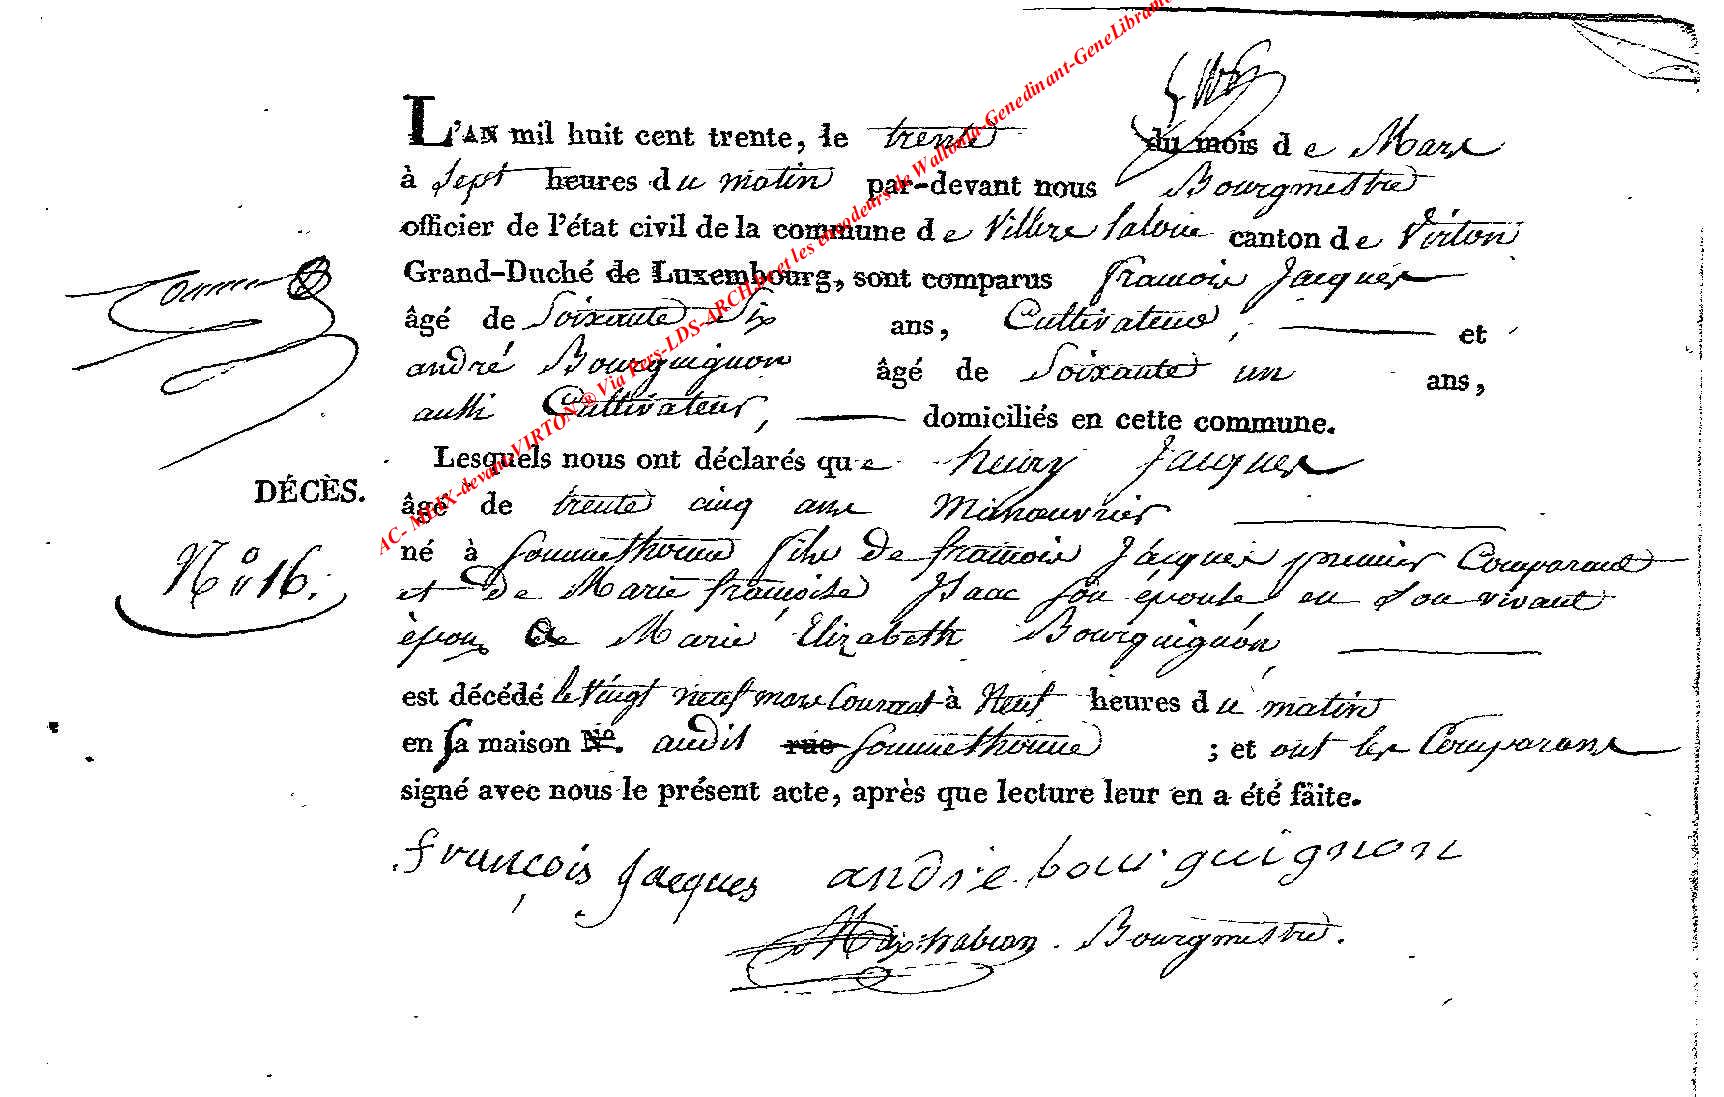 L'AN mil huit cent trente, le trente du mois de Mars
à Sept heures du matin par-devant nous Bourgmestre
officier de l'état civil de la commune de Villers laloue canton de Virton
Grand-Duché de Luxembourg, sont comparus francois Jacques
âgé de Soixante Six ans, Cultivateur, et
andré Bourguignon âgé de Soixante un ans,
aussi Cultivateur, domiciliés en cette commune.
Lesquels nous ont déclarés que henry Jacques
DÉCÈS.
âgé de trente cinq ans Manouvrier
N° 16.
né à Sommethonne fils de francois Jacques premier Comparant
et de Marie françoise Isaac son épouse en son vivant
époux de Marie Elizabeth Bourguignon
est décédé le Vingt neuf mars Courant à Neuf heures du matin
en sa maison N°. audit rue Sommethonne ; et ont les Comparans
signé avec nous le présent acte, après que lecture leur en a été faite.
françois Jacques andré bourguignon
Bourgmestre.
AC- MEIX-devant-VIRTON ® Via Pers-LDS-ARCH et les encodeurs de Wallonia-Genedinant-GeneLibramo